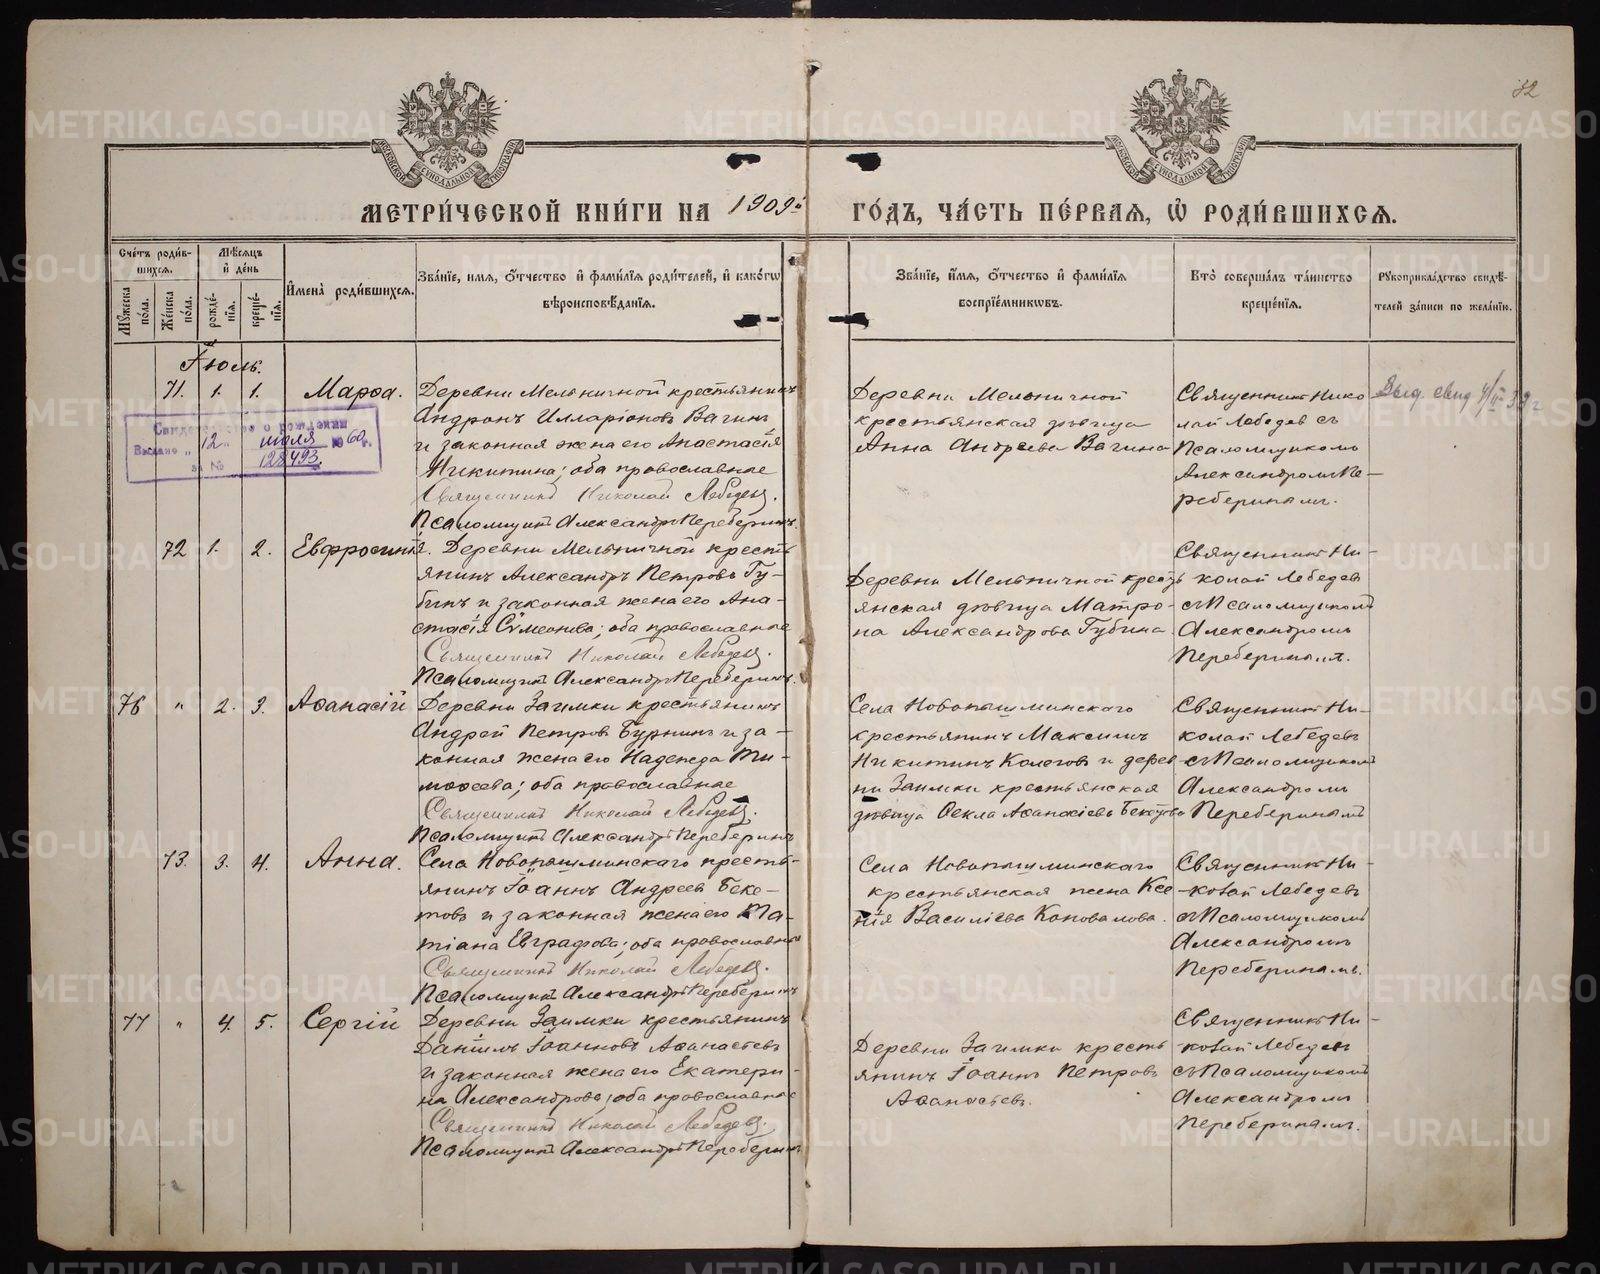 82
МОСКОВСКОЙ СУНОДАЛЬНОЙ ТИПОГРАФІИ
МОСКОВСКОЙ СУНОДАЛЬНОЙ ТИПОГРАФІИ
МЕТРИ́ЧЕСКОЙ КНИ́ГИ НА 1909й ГО́ДЪ, ЧА́СТЬ ПЕ́РВАЯ, Ѡ҆ РОДИ́ВШИХСЯ.
Сче́тъ роди́в-
шихся.
Мꙋжеска по́ла.
Же́нска по́ла.
Мѣ́сяцъ
и҆ де́нь
рожде́-
нїя.
креще́-
нїя.
И҆мена̀ роди́вшихся.
Зва́нїе, имя, о҆́тчество и҆ фами́лїя роди́телей, и҆ како́гѡ
вѣроисповѣ́данїя.
Зва́нїе, и҆́мя, о҆́тчество и҆ фами́лїя
воспрїе́мникѡвъ.
Кто̀ соверша́лъ та́инство
креще́нїя.
Рꙋкоприкла́дство свидѣ́-
телей за́писи по жела́нїю.
Іюль.
71. 1. 1. Марѳа.
Деревни Мельничной крестьянинъ
Андронъ Илларіоновъ Вагинъ
и законная жена его Анастасія
Никитина; оба православные
Священникъ Николай Лебедевъ.
Псаломщикъ Александръ Переберинъ.
Деревни Мельничной
крестьянская дѣвица
Анна Андреева Вагина
Священникъ Нико
лай Лебедев съ
Псаломщикомъ
Александромъ Пе-
реберинымъ.
Выд. свид 4/II 39 г
Свидетельство о рождении
Выслано „12“ июля 1960 г.
за № 128493.
72 1. 2. Евфросинія.
Деревни Мельничной кресть
янинъ Александръ Петровъ Гу-
бинъ и законная жена его Ана-
стасія Сѵмеонова; оба православные
Священникъ Николай Лебедевъ.
Псаломщикъ Александръ Переберинъ.
Деревни Мельничной кресть
янская дѣвица Матро-
на Александрова Губина
Священникъ Ни-
колай Лебедевъ
съ Псаломщикомъ
Александромъ
Переберинымъ.
76 " 2. 3. Аѳанасій
Деревни Заимки крестьянинъ
Андрей Петров Бурнинъ и за-
конная жена его Надежда Ти-
моѳеева; оба православные
Священникъ Николай Лебедевъ.
Псаломщикъ Александръ Переберинъ
Села Новопышминскаго
крестьянинъ Максимъ
Никитинъ Колегов и дерев
ни Заимки крестьянская
дѣвица Ѳекла Аѳанасіева Бекетова
Священникъ Ни-
колай Лебедевъ
съ Псаломщикомъ
Александромъ
Переберинымъ
73. 3. 4. Анна.
Села Новопышминскаго кресть-
янинъ Іоаннъ Андреев Беке-
товъ и законная жена его Та-
тіана Евграфова; оба православные
Священникъ Николай Лебедевъ.
Псаломщикъ Александръ Переберинъ
Села Новопышминскаго
крестьянская жена Ксе
нія Василіева Коновалова.
Священникъ Ни-
колай Лебедевъ
съ Псаломщикомъ
Александромъ
Переберинымъ.
77 " 4. 5. Сергій
Деревни Заимки крестьянинъ
Даніилъ Іоанновъ Аѳанасьевъ
и законная жена его Екатери-
на Александрова; оба православные
Священникъ Николай Лебедевъ.
Псаломщикъ Александръ Переберинъ
Деревни Заимки кресть
янинъ Іоаннъ Петровъ
Аѳанасьевъ.
Священникъ Ни-
колай Лебедевъ
съ Псаломщикомъ
Александромъ
Переберинымъ.
METRIKI.GASO-URAL.RU